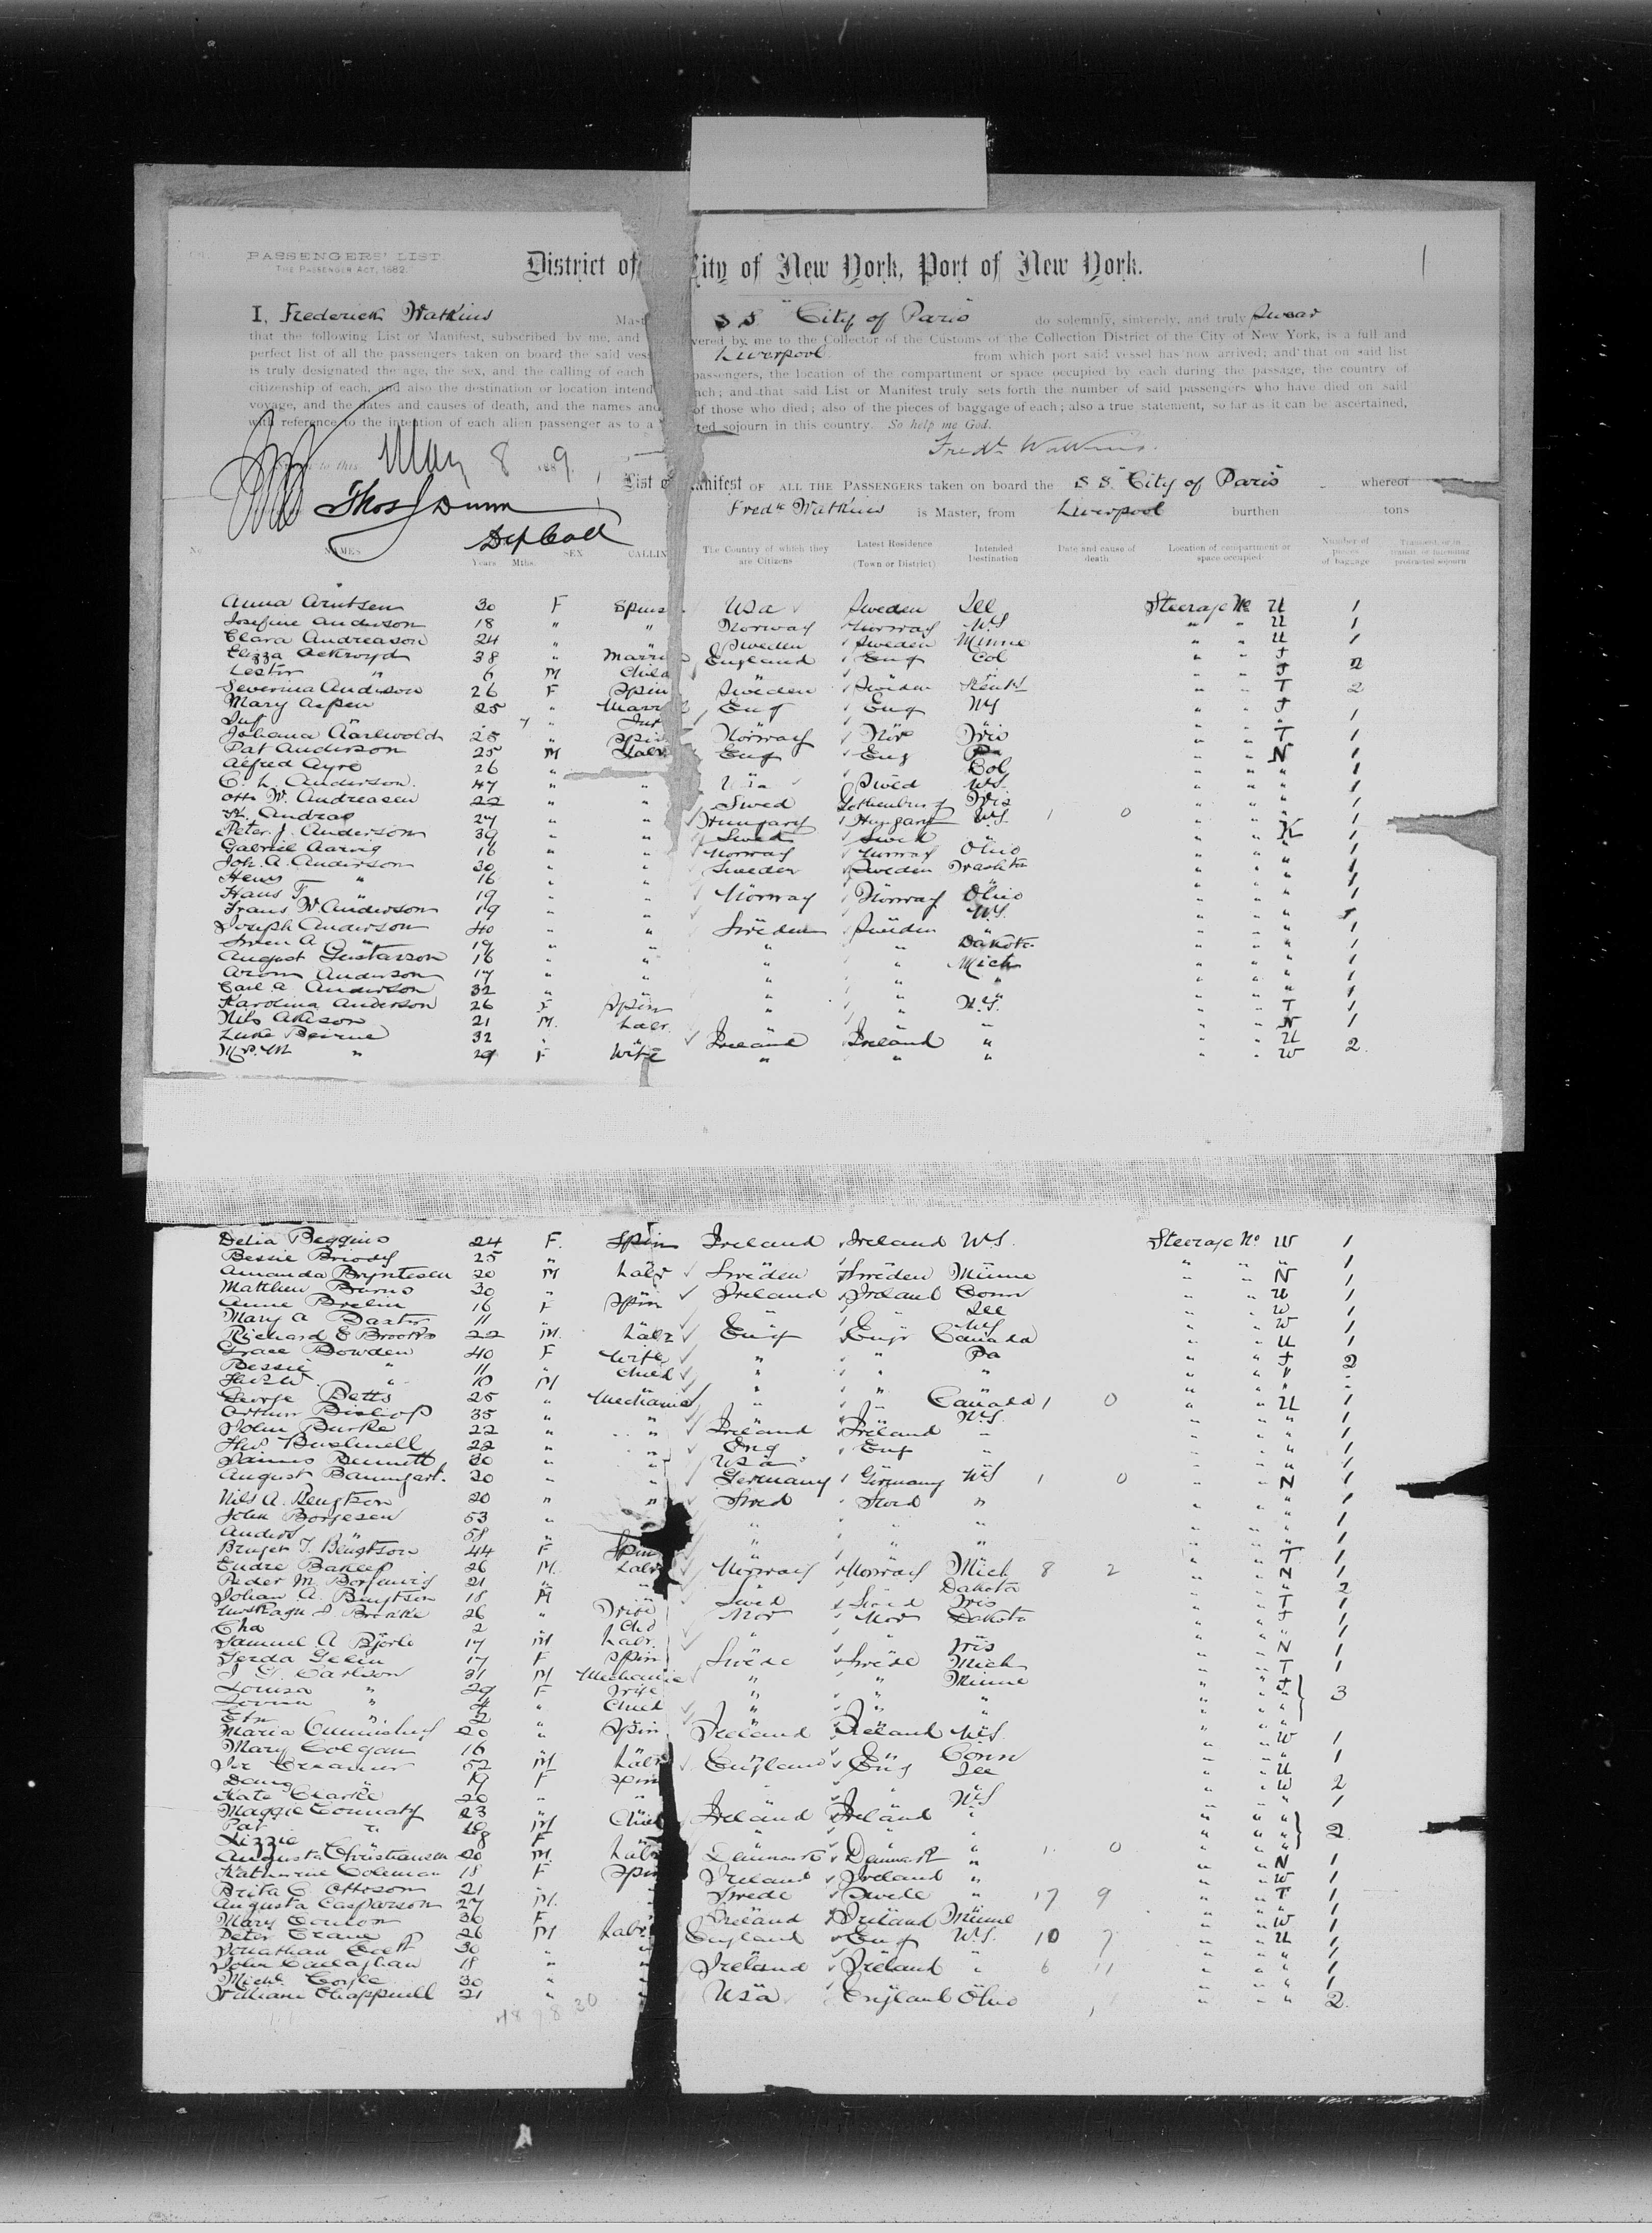 PASSENGERS' LIST.
THE PASSENGER ACT, 1882.
District of City of New York, Port of New York.
1
I, Frederick Watkins Mast S S "City of Paris" do solemnly, sincerely, and truly Swear
that the following List or Manifest, subscribed by me, and vered by me to the Collector of the Customs of the Collection District of the City of New York, is a full and
perfect list of all the passengers taken on board the said vess Liverpool from which port said vessel has now arrived; and that on said list
is truly designated the age, the sex, and the calling of each passengers, the location of the compartment or space occupied by each during the passage, the country of
citizenship of each, and also the destination or location intend ach; and that said List or Manifest truly sets forth the number of said passengers who have died on said
voyage, and the dates and causes of death, and the names and of those who died; also of the pieces of baggage of each; also a true statement, so far as it can be ascertained,
with reference to the intention of each alien passenger as to a ted sojourn in this country. So help me God.
Fredk Watkins.
to this May 8 1889.
List of Manifest OF ALL THE PASSENGERS taken on board the S S. "City of Paris" whereof
Thos J Dunn
Fredk Watkins is Master, from Liverpool burthen tons
Dep Coll
No NAMES Years Mths. SEX CALLIN The Country of which they are Citizens Latest Residence (Town or District) Intended Destination Date and cause of death Location of compartment or space occupied Number of pieces of baggage Transient, or in transit, or intending protracted sojourn
Anna Arntsen 30 F Spins USa Sweden Ill Steerage No U 1
Josefine Anderson 18 " " Norway Norway NY " " U 1
Clara Andreason 24 " Sweden Sweden Minne " " U 1
Eliza Ackroyd 38 " Marri England Eng Col " " J 2
Lester " 6 M Child " " J
Severina Anderson 26 F Spin Sweden Sweden " " T 2
Mary Aspen 25 " Marr Eng Eng NY " " J 1
Inf 7 " Inf
Johana 25 " Spin Norway Nor Wis " " T 1
Pat Anderson 25 M Labr Eng Eng Pa " " N 1
Alfred Ayre 26 " Col " " " 1
C. L. Anderson 47 " " Usa Swed NY " " " 1
Otto W. Andreasen 22 " " Swed Gothenburg Wis " " " 1
27 " " Hungary Hungary NY 1 0 " " " 1
Peter J. Anderson 39 " " Swed Swed " " " 1
Gabriel 16 " " Norway Norway Ohio " " " 1
Joh. A. Anderson 30 " " Sweden Sweden " " " 1
Henry " 16 " " " " " 1
Hans F. " 19 " " Norway Norway Ohio " " " 1
Frans W Anderson 19 " " NY " " " 1
Joseph Anderson 40 " " Sweden Sweden " " " " 1
Swen A. " 19 " " " " Dakota " " " 1
August Gustarson 16 " " " " Mich " " " 1
Anderson 17 " " " " " " " " 1
Carl A Anderson 32 " " " " " " " 1
Karolina Anderson 26 F Spin " " N.Y. " " T 1
Nils 21 M. Labr. " " " " " N 1
Luke Beirne 32 " " Ireland Ireland " " " U
" 29 F Wife " " " " " W 2
Delia Beggins 24 F. Spin Ireland Ireland NY. Steerage No W 1
Bessie Briody 25 " " " " " 1
Amanda 20 M Labr Sweden Sweden Minne " " N 1
Matthew Burns 30 " Ireland Ireland Conn " " U 1
Anne 16 F Spin Ill " " W 1
Mary A Baxter 11 NY " " W 1
Richard E Brooks 22 M. Labr Eng Eng Canada " " U 1
Grace Bowden 40 F Wife " " Pa " " J 2
Bessie " 11 " Child " " " " " "
" 10 M " "
George Betts 25 " Mechanic " " Canada 1 0 " " U 1
Arthur Bishop 35 " " NY. " " " 1
John Burke 22 " " Ireland Ireland " " " " 1
Bushnell 22 " " Eng Eng " " " " 1
James Bennett 30 " " USa " " " 1
August Baumgart. 20 " " Germany Germany NY 1 0 " " N 1
Nils A. Bengtson 20 " " Swed Swed " " " " 1
John Borjesen 53 " " " " " " " 1
Anders 58 " " " " " " " 1
Bengtson 44 F Spin " " " " " T 1
26 M. Labr Norway Norway Mich 8 2 " " N 1
Peder M. 21 " Dakota " " " 2
Johan A. 18 M Swed Swed Wis " " T 1
26 " Wife Nor Nor Dakota " " J 1
2 Chd " " " " " 1
Samuel A 17 M Labr. Wis " " N 1
Gerda 17 F Spin Swede Swede Mich " " T 1
J. G. Carlson 31 M Mechanic " " Minne " " J
Louisa " 29 F Wife " " " " " 3
" 4 " Child " " " " "
2
Maria 20 " Spin Ireland Ireland NY " " W 1
Mary Colgan 16 " " Conn " " " 1
52 M Labr England Eng Ill " " U
19 F Spin " " W 2
Kate Clarke 20 " " " NY " " " 1
Maggie 23 " Ireland Ireland " " " "
Pat " 10 M Child " " " " " 2
Lizzie 8 F " " "
Augusta Christiansen 20 M. Labr Denmark Denmark " 1 0 " " N 1
Katharine Coleman 18 F Spin Ireland Ireland " " " W 1
Brita C 21 " Swede Swede " 17 9 " " T 1
Augusta Casparson 27 M. " " " 1
Mary 30 F Ireland Ireland Minne " " W 1
Peter Crane 26 M Labr. England Eng NY. 10 7 " " U 1
Jonathan 30 " " " " " 1
John Callaghan 18 " " Ireland Ireland " 6 11 " " " 1
Michl. Coyle 30 " " " " " 1
William Chappell 21 " " Usa England Ohio " " " 2